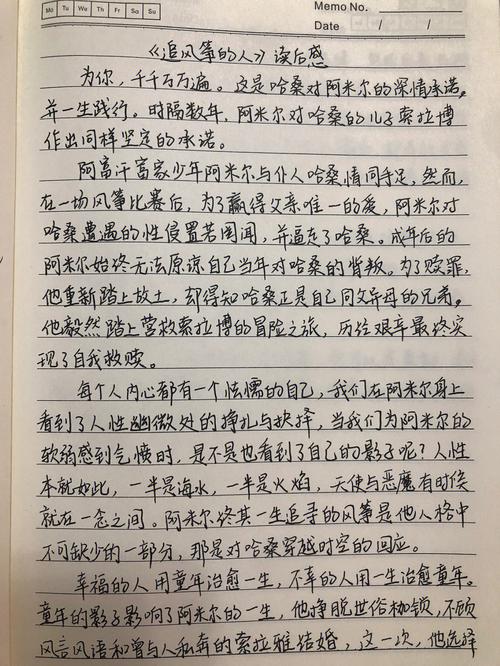 Mo Tu We Th Fr Sa Su
Memo No.
Date / /
《追风筝的人》读后感
为你，千千万万遍。这是哈桑对阿米尔的深情承诺，
并一生践行。时隔数年，阿米尔对哈桑的儿子索拉博
作出同样坚定的承诺。
阿富汗富家少年阿米尔与仆人哈桑情同手足，然而，
在一场风筝比赛后，为了赢得父亲唯一的爱，阿米尔对
哈桑遭遇的性侵置若罔闻，并逼走了哈桑。成年后的
阿米尔始终无法原谅自己当年对哈桑的背叛。为了赎罪，
他重新踏上故土，却得知哈桑正是自己同父异母的兄弟。
他毅然踏上营救索拉博的冒险之旅，历经艰辛最终实
现了自我救赎。
每个人内心都有一个怯懦的自己，我们在阿米尔身上
看到了人性幽微处的挣扎与抉择，当我们为阿米尔的
软弱感到气愤时，是不是也看到了自己的影子呢？人性
本就如此，一半是海水，一半是火焰，天使与恶魔有时候
就在一念之间。阿米尔终其一生追寻的风筝是他人格中
不可缺少的一部分，那是对哈桑穿越时空的回应。
幸福的人用童年治愈一生，不幸的人用一生治愈童年。
童年的影子影响了阿米尔的一生，他挣脱世俗枷锁，不顾
风言风语和曾与人私奔的索拉雅结婚，这一次，他选择